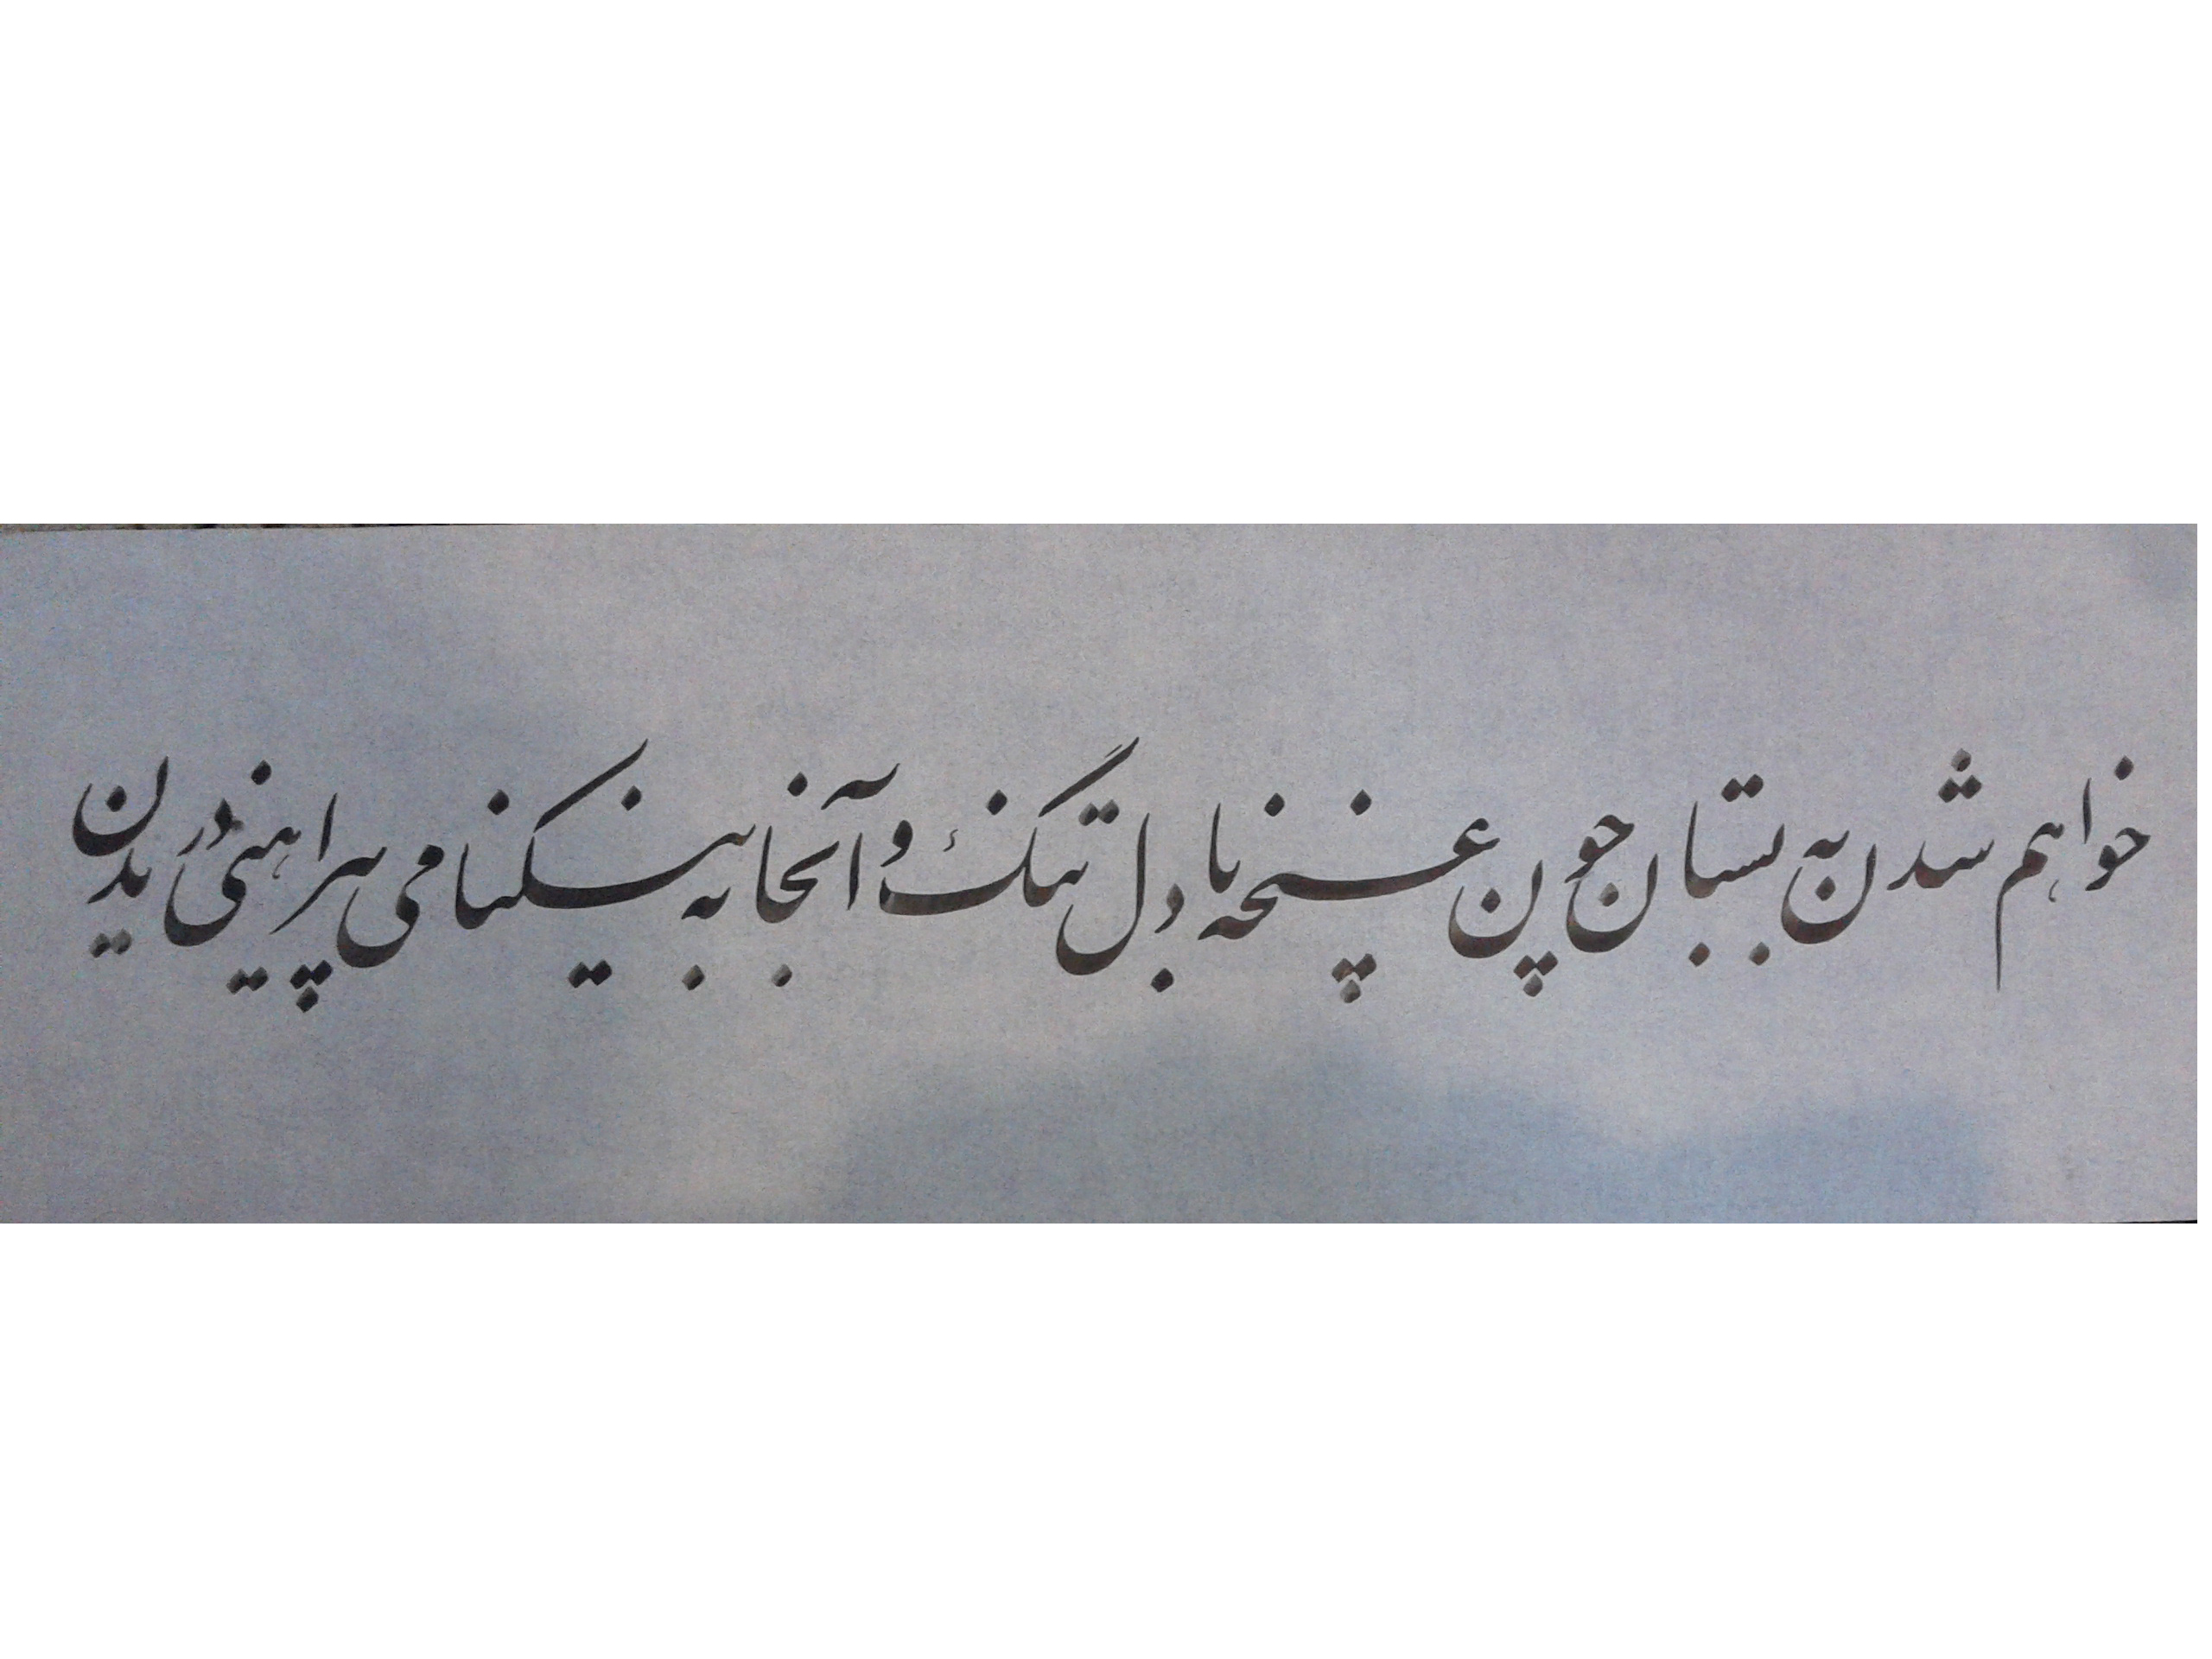 خواهم شدن به بستان چون غنچه با دل تنگ و آنجا به نیکنامی پیراهنی دریدن